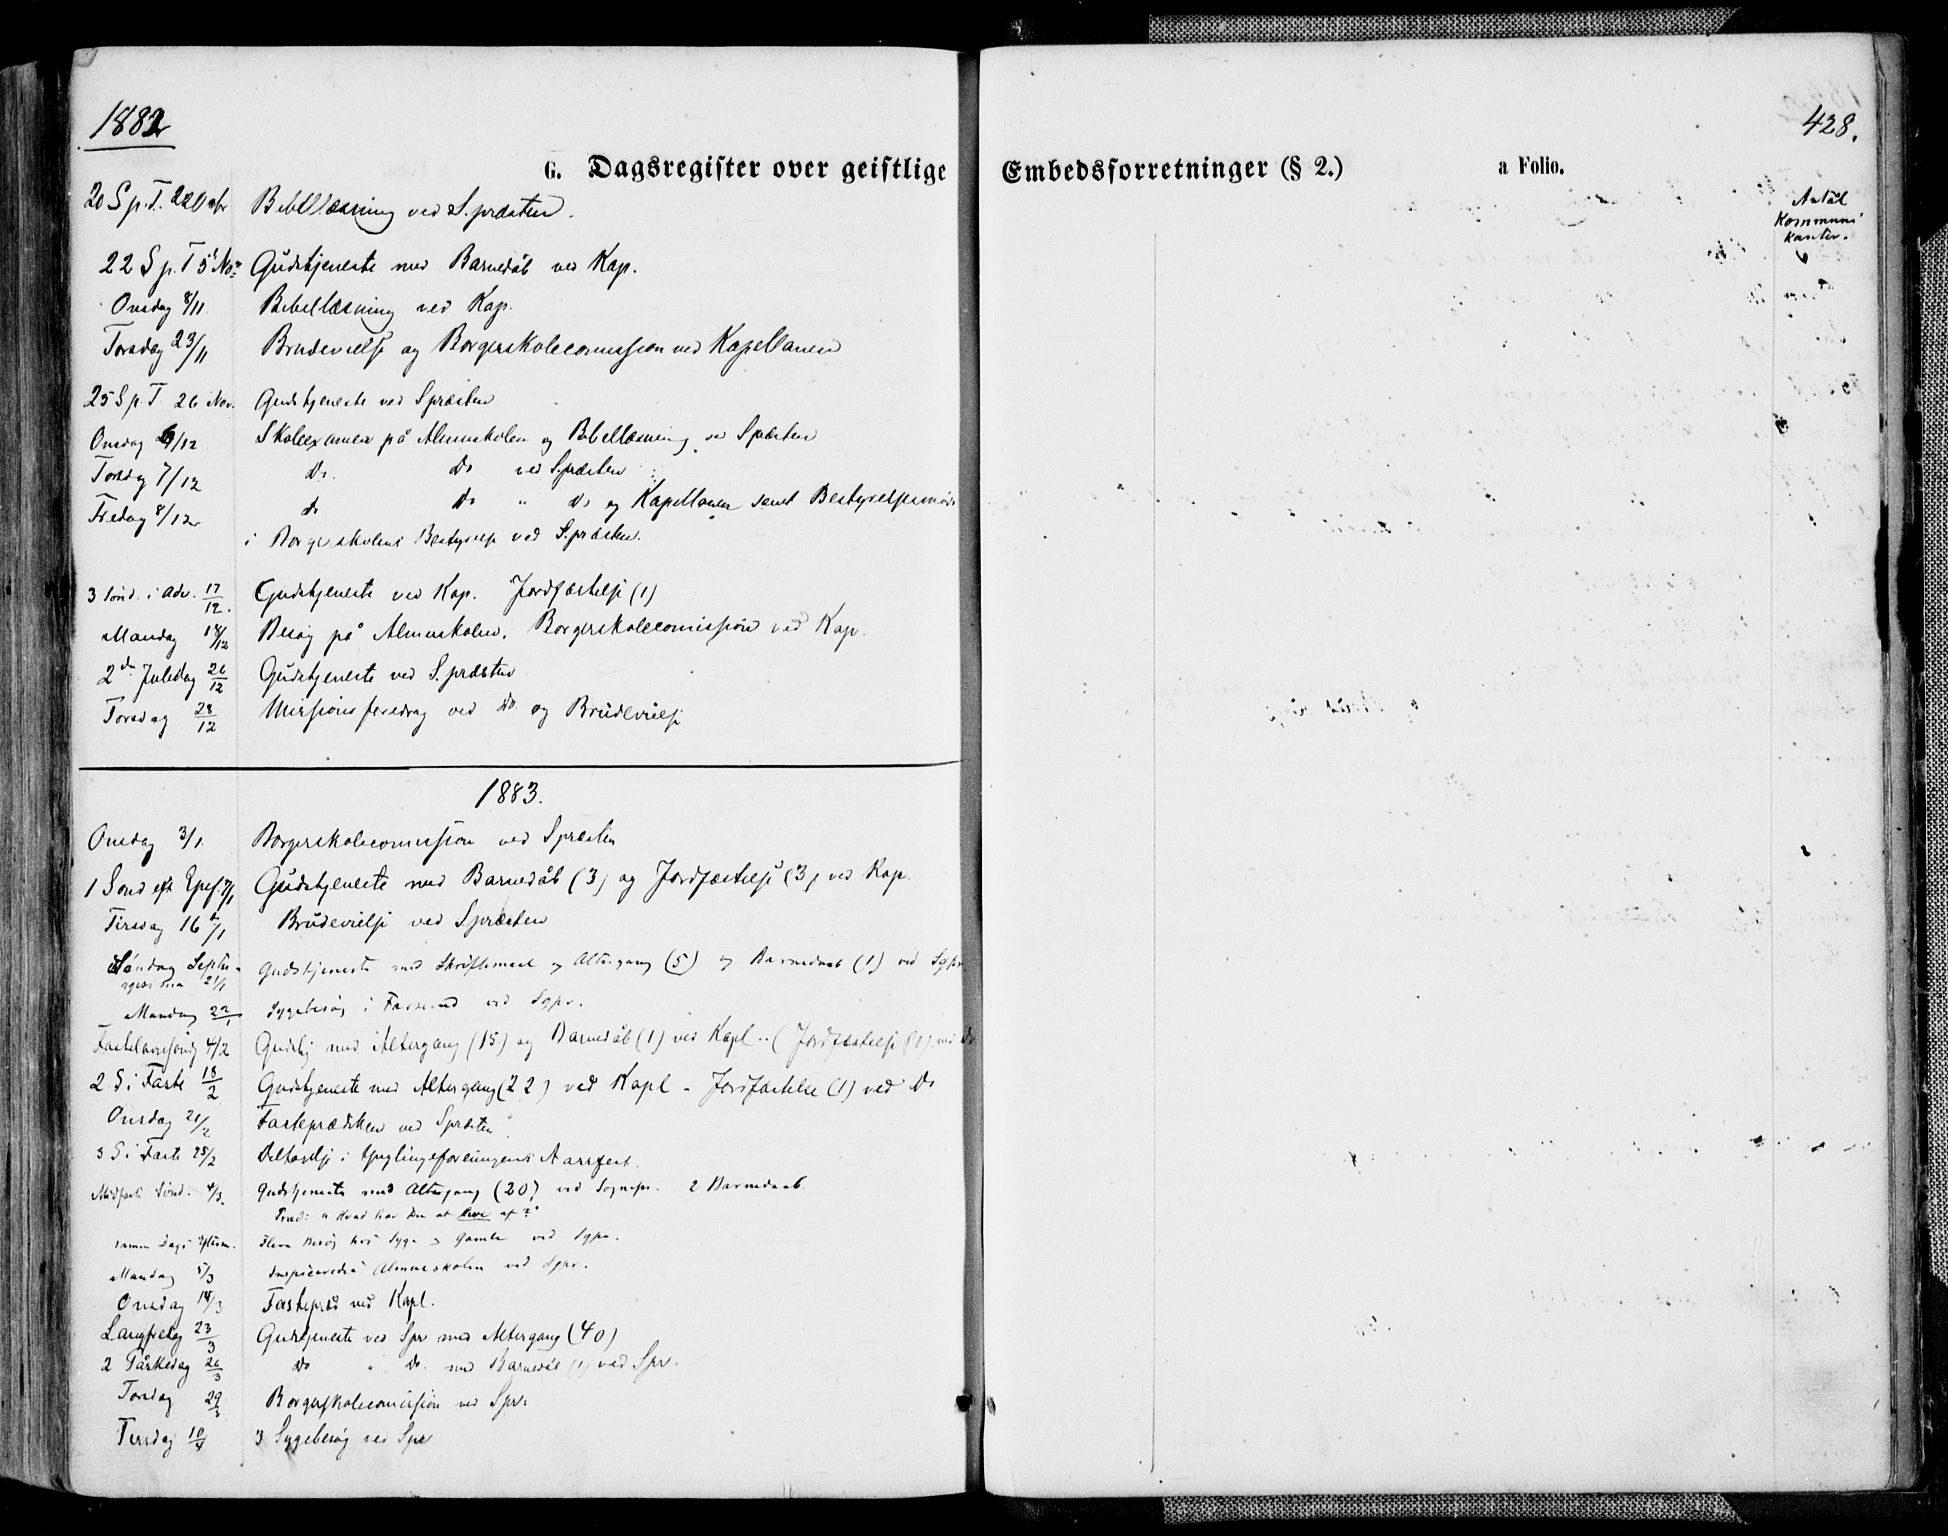 1882
428.
G. Dagsregister over geistlige Embedsforretninger (§ 2.) a Folio.
Antal
Kommuni
kanter.
20 S p. T. Bibellæsning ved S.præsten.
22 S p. T 5 Nov Gudstjeneste med Barnedåb ved Kap.
Onsdag 8/11 Bibellæsning ved Kap.
Torsdag 23/11 Brudevielse og Borgerskolecomission ved Kapellanen
25 S p. T. 26 Nov. Gudstjeneste ved Spræsten
Onsdag 6/12 Skoleexamen på Almuskolen og Bibellæsning ved Spræsten
Torsdag 7/12 Do. Do ved S.præsten
Fredag 8/12 do do " Do og Kapellanen samt Bestyrelsesmøde
i Borgerskolens Bestyrelse ved S.præsten.
3 Sønd. i Adv. 17/12. Gudstjeneste ved Kap. Jordfæstelse (1)
Mandag 18/12 Besøg på Almuskolen. Borgerskolecomission ved Kap.
2den Juledag 26/12 Gudstjeneste ved S.præsten
Torsdag 28/12 Missionsforedrag ved Do. og Brudevielse
1883.
Onsdag 3/1. Borgerskolecomission ved Spræsten
1 Sønd eft Epif. 7/1 Gudstjeneste med Barnedåb (3) og Jordfæstelse (3) ved Kap.
Tirsdag 16/1 Brudevielse ved Spræsten
Søndag Septua-
gesima 21/1 Gudstjeneste med Skriftemaal og Altergang (5) og Barnedaab (1) ved Sgpr.
Mandag 22/1 Sygebesøg i Farsund ved Sgpr.
Fastelavnssønd 4/2 Gudstj med Altergang (15) og Barnedåb (1) ved Kapl. (Jordfæstelse (1) ved Do
2 S i Faste 18/2 Gudstjeneste med Altergang (22) ved Kapl - Jordfæstelse (1) ved Do
Onsdag 21/2 Fasteprædiken ved Spræsten
3 S i Faste 25/2 Deltagelse i Ynglingeforeningens Aarsfest.
Midfaste Sønd. 4/3. Gudstjeneste med Altergang (20) ved Sognepr. 2 Barnedaab
Præd: "Hvad har Du at leve af?"
samme Dags Efterm. Flere Besøg hos Syge og Gamle ved Sgpr.
Mandag 5/3 Inspicerede Almueskolen ved Sgpr.
Onsdag 14/3 Fastepræd ved Kapl.
Langfredag 23/3 Gudstjeneste ved Spr med Altergang (40)
2 Påskedag 26/3 Do " Do. med Barnedåb (1) ved Spr.
Torsdag 29/3 Borgerskolecomission ved Spr.
Tirsdag 10/4 3 Sygebesøg ved Spr